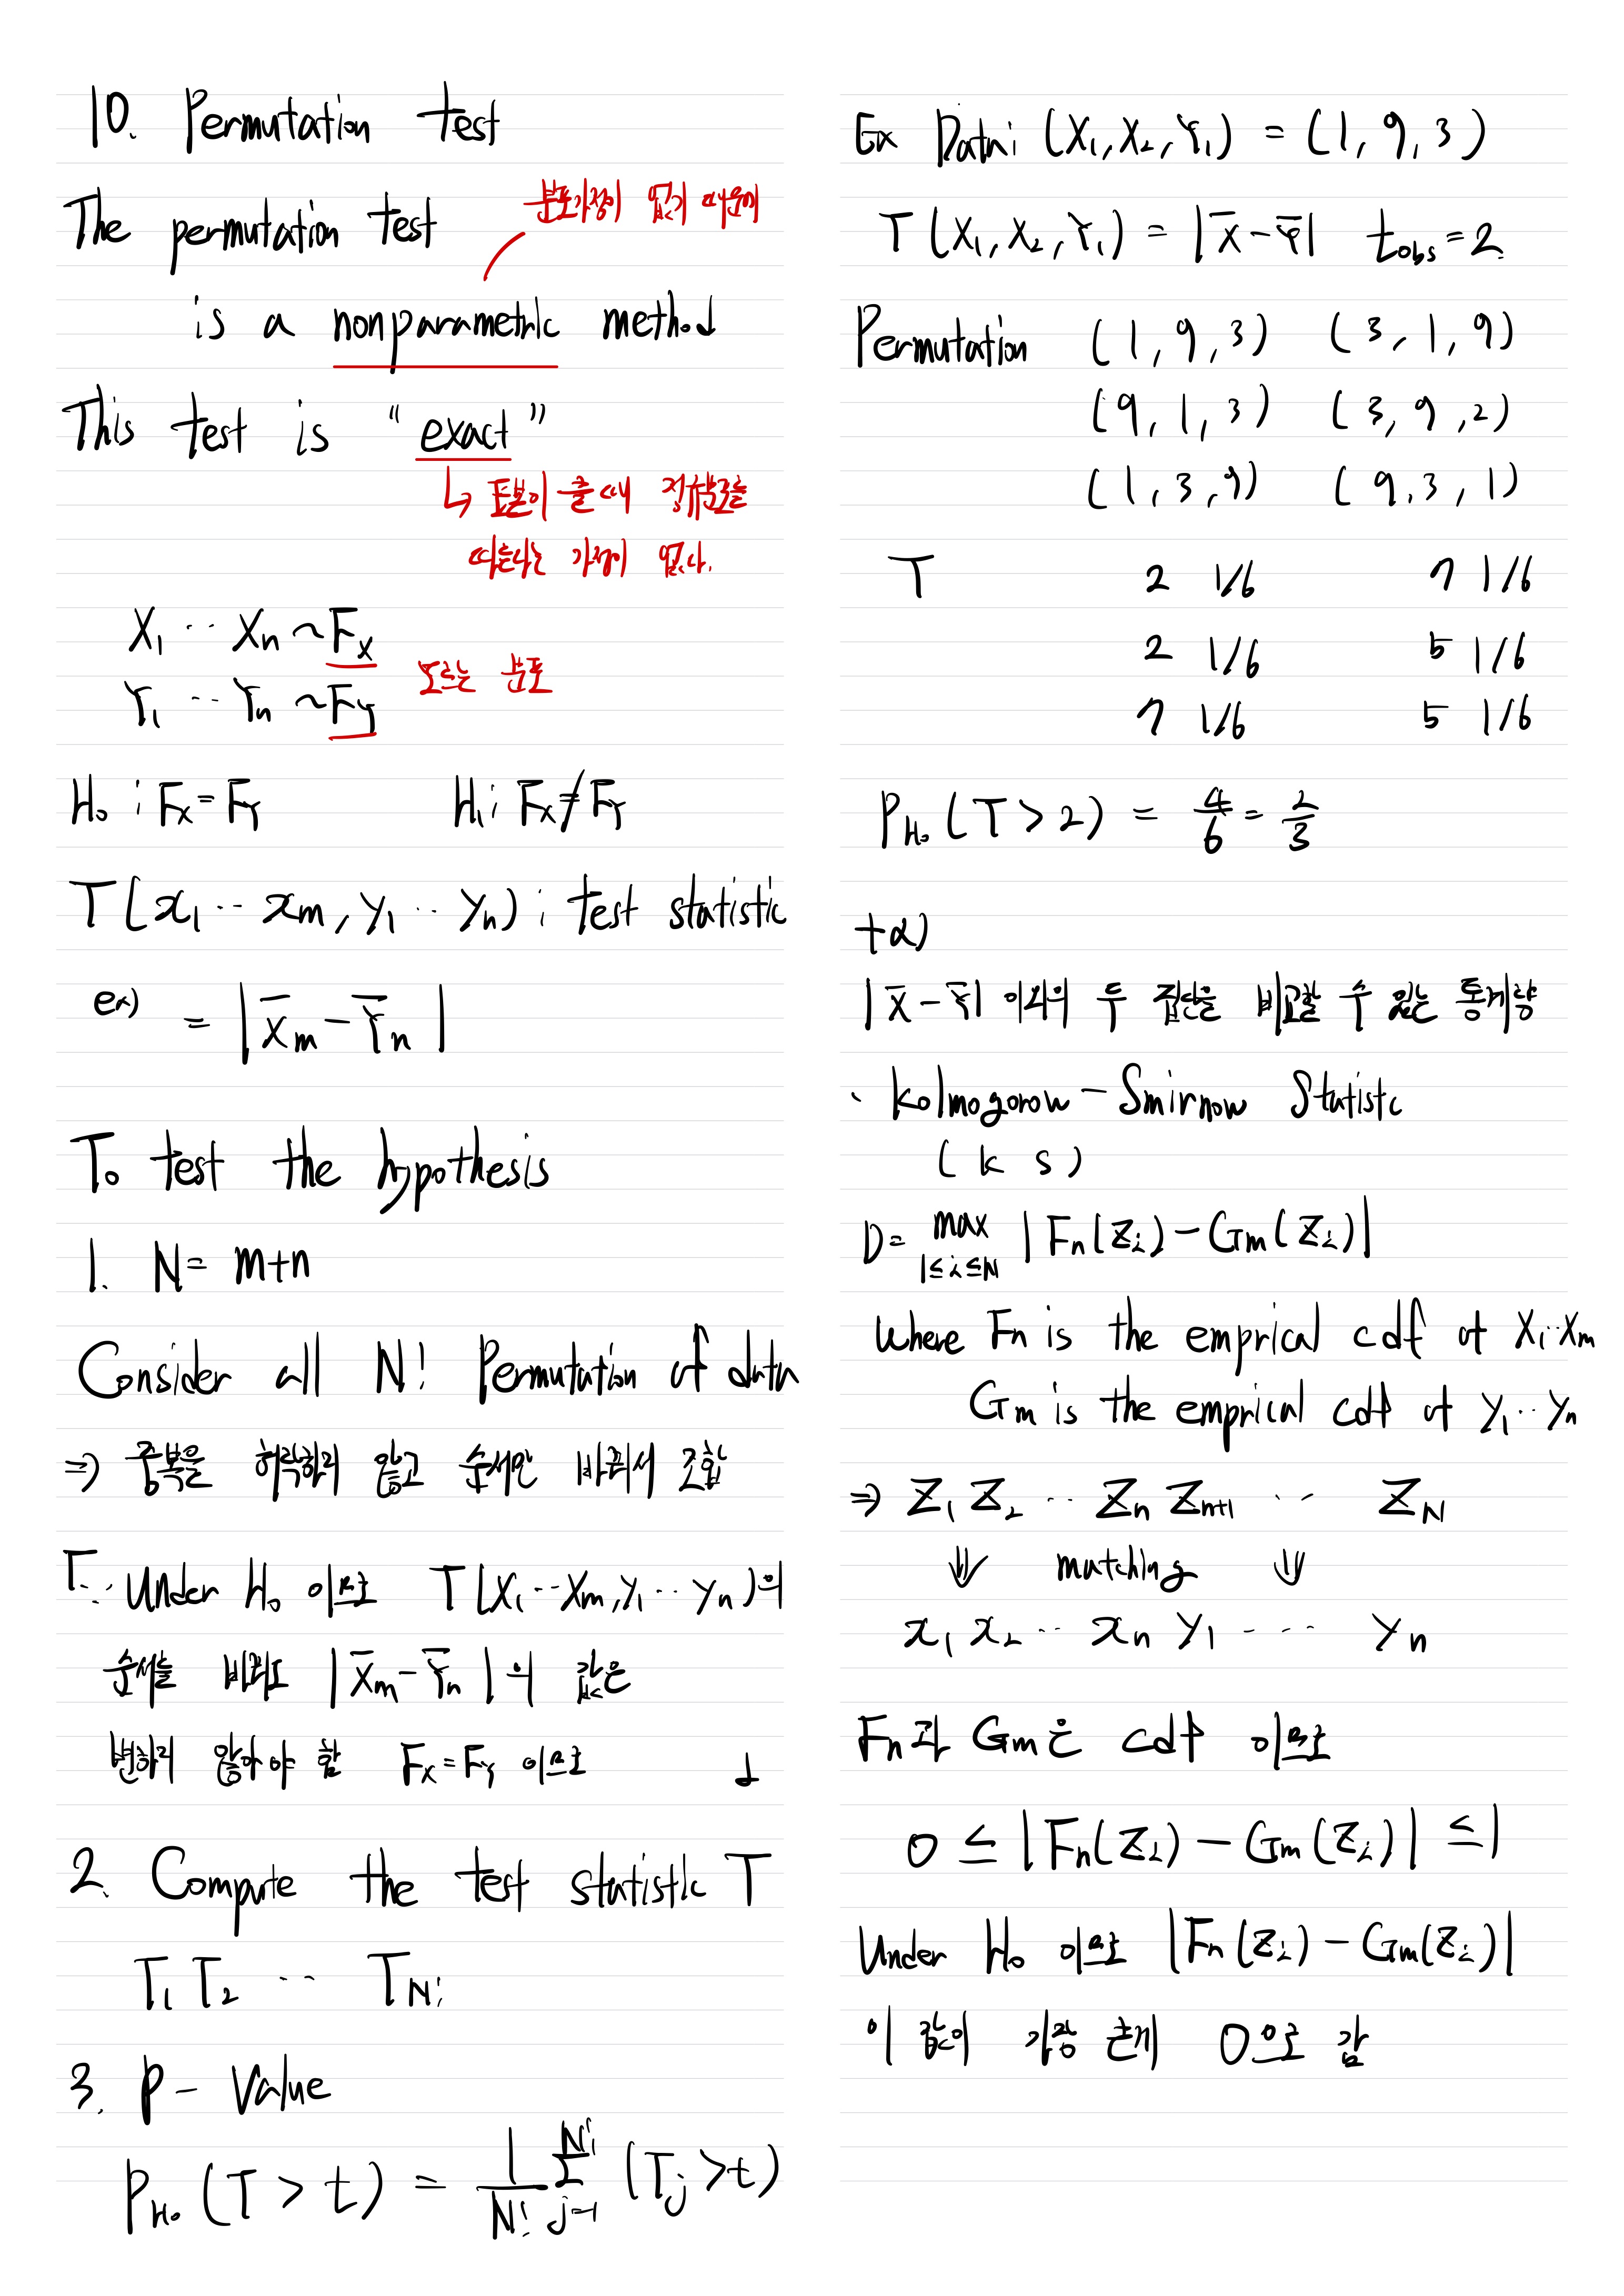 10. Permutation test
The permutation test
분포가정이 없기 때문에
is a nonparametric method
This test is "exact"
↳ 표본이 클때 정규분포를
따른다는 가정이 없다.
X₁ ‥ Xn ~ Fx
Y₁ ‥ Yn ~ Fy
모르는 분포
H₀ : Fx = FY   H₁ : Fx ≠ FY
T(x₁ ‥ xm, y₁ ‥ yn) : test statistic
ex) = |X̄m − Ȳn|
To test the hypothesis
1. N = m+n
Consider all N! Permutation of data
⇒ 중복을 허락하지 않고 순서만 바꿔서 조합
「∵ Under H₀ 이므로 T(X₁ ‥ Xm, Y₁ ‥ Yn)의
순서를 바꿔도 |X̄m − Ȳn|의 값은
변하지 않아야 함 Fx = FY 이므로 」
2. Compute the test statistic T
T₁ T₂ ‥ TN!
3. P-Value
PH₀(T > t) = 1/N! Σ j=1 N! (Tj > t)
Ex Data: (X₁, X₂, Y₁) = (1, 9, 3)
T(X₁, X₂, Y₁) = |X̄ − Ȳ|  tobs = 2
Permutation (1, 9, 3) (3, 1, 9)
(9, 1, 3) (3, 9, 2)
(1, 3, 9) (9, 3, 1)
T 2 1/6 7 1/6
2 1/6 5 1/6
7 1/6 5 1/6
PH₀(T > 2) = 4/6 = 2/3
+α)
|X̄ − Ȳ| 이외의 두 집단을 비교할 수 있는 통계량
· Kolmogorow - Smirnow Statistc
(K S)
D = max 1≤i≤N |Fn(Zi) − Gm(Zi)|
where Fn is the emprical cdf of X₁‥Xm
Gm is the emprical cdf of Y₁‥Yn
⇒ Z₁ Z₂ ‥ Zn Zn+1 ‥ ZN
⇓ matching ⇓
x₁ x₂ ‥ xn y₁ ‥‥ yn
Fn과 Gm은 cdf 이므로
0 ≤ |Fn(Zi) − Gm(Zi)| ≤ 1
Under H₀ 이므로 |Fn(Zi) − Gm(Zi)|
이 값이 가장 크게 0으로 감